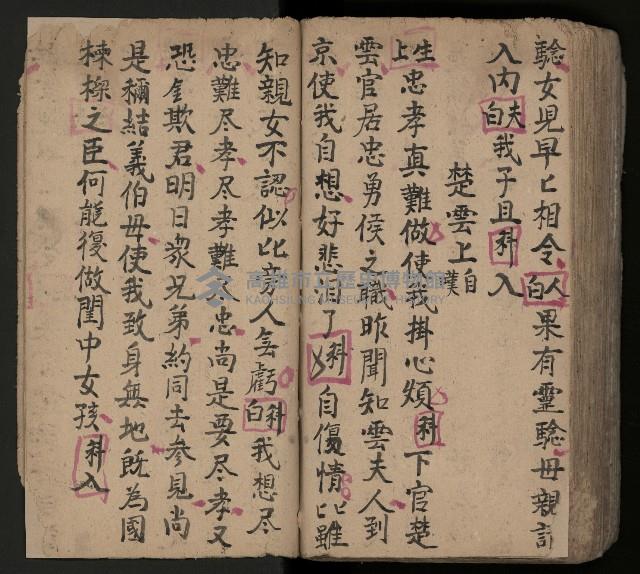 騐女児早匕相令人白果有靈騐母親請
入内夫白我子且科入
楚雲上自嘆
生上忠孝真難做使我掛心煩科下官楚
雲官居忠勇侯之職昨聞知雲夫人到
京使我自想好悲伤了科自傷情匕雖
知親女不認似比旁人無虧科白我想尽
忠難尽孝尽孝難忠尚是要尽孝又
恐全欺君明日衆兄弟約同去参見尚
是稱結義伯母使我致身無地既為國
棟樑之臣何能復做閨中女孩科入
高雄市立歷史博物館
KAOHSIUNG MUSEUM OF HISTORY